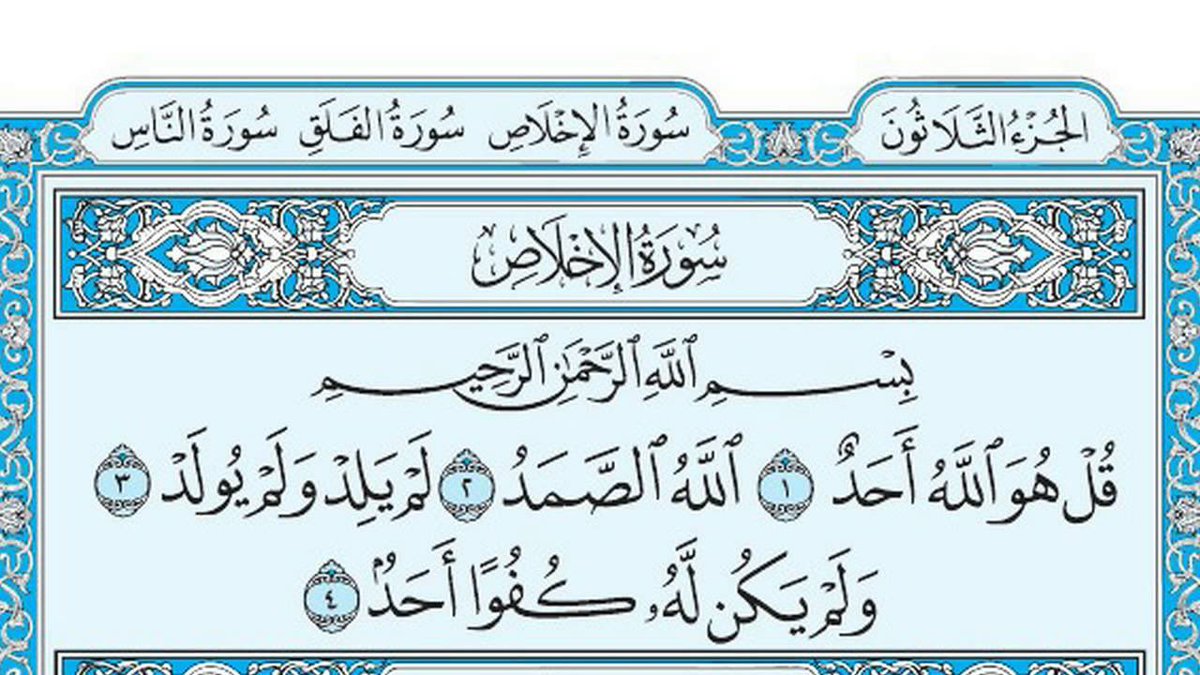 الجُزْءُ الثَّلَاثُونَ سُورَةُ الإِخْلَاصِ سُورَةُ الفَلَقِ سُورَةُ النَّاسِ
سُورَةُ الإِخْلَاصِ
بِسْمِ ٱللَّهِ ٱلرَّحْمَٰنِ ٱلرَّحِيمِ
قُلْ هُوَ ٱللَّهُ أَحَدٌ ١ ٱللَّهُ ٱلصَّمَدُ ٢ لَمْ يَلِدْ وَلَمْ يُولَدْ ٣
وَلَمْ يَكُن لَّهُۥ كُفُوًا أَحَدٌۢ ٤